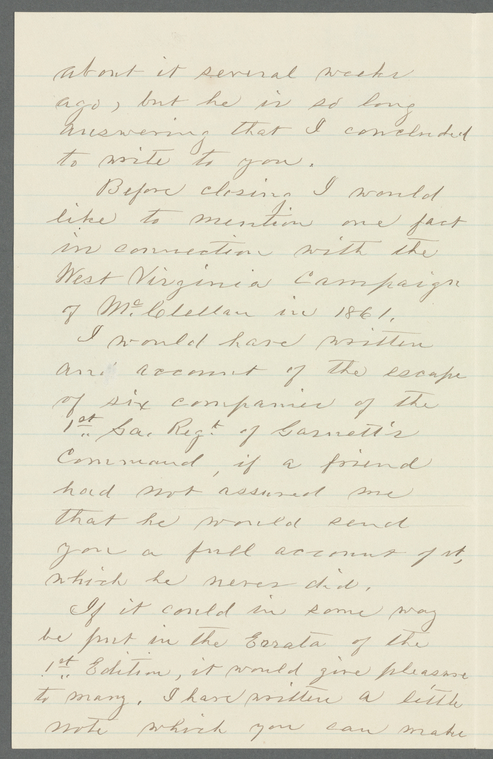 about it several weeks
ago, but he is so long
answering that I concluded
to write to you.
Before closing I would
like to mention one fact
in connection with the
West Virginia Campaign
of McClellan in 1861.
I would have written
an account of the escape
of six companies of the
1st Ga. Regt. of Garnett's
Command, if a friend
had not assured me
that he would send
you a full account of it,
which he never did.
If it could in some way
be put in the Errata of the
1st Edition, it would give pleasure
to many. I have written a little
note which you can make